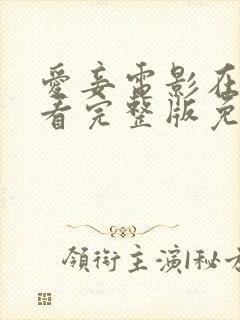 愛妾電影在
看完整版免
領銜主演1秘方